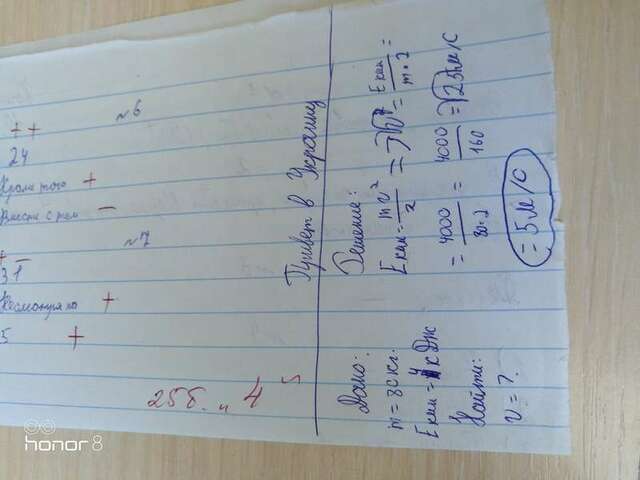 ++ №6
24
Кроме того +
Вместе с тем −
+ − №7
31
Несмотря на +
5 +
25б. " 4 "
Привет в Украину
Дано:
m = 80 кг.
Eкин = 4 кДж
Найти:
υ = ?
Решение:
Eкин = mυ²/2 => υ² = Eкин/m·2 =
= 4000/80·2 = 4000/160 = √25 м/с
= 5 м/с
honor 8